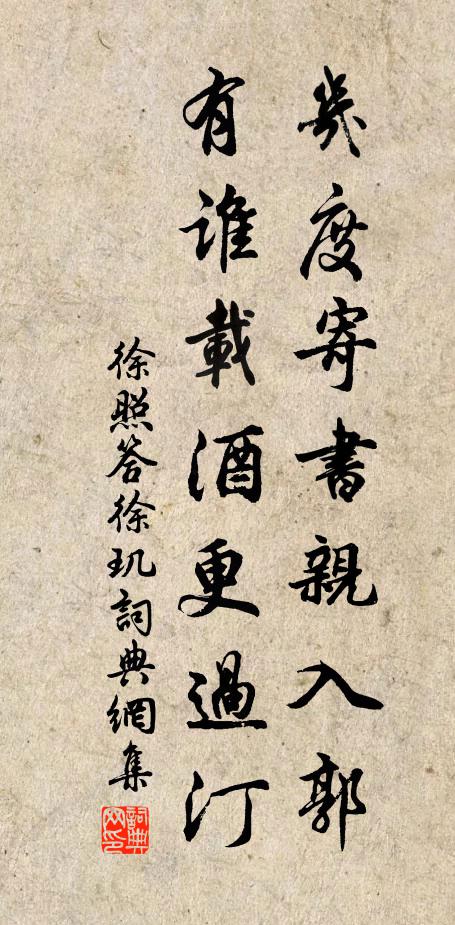 幾度寄書親入郭
有誰載酒更過汀
徐照答徐玑詞典網集
詞典网印